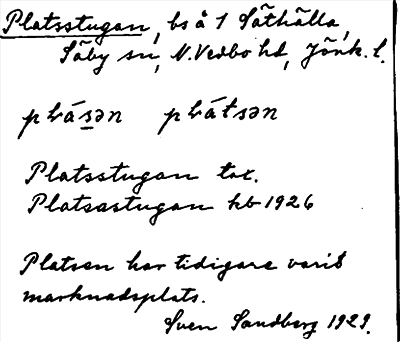 Platsstugan, bs å 1 Säthälla,
Säby sn, N. Vedbo hd, Jönk. l.
plásən plátsən
Platsstugan tax.
Platsastugan kb 1926
Platsen har tidigare varit
marknadsplats.
Sven Sandberg 1929.